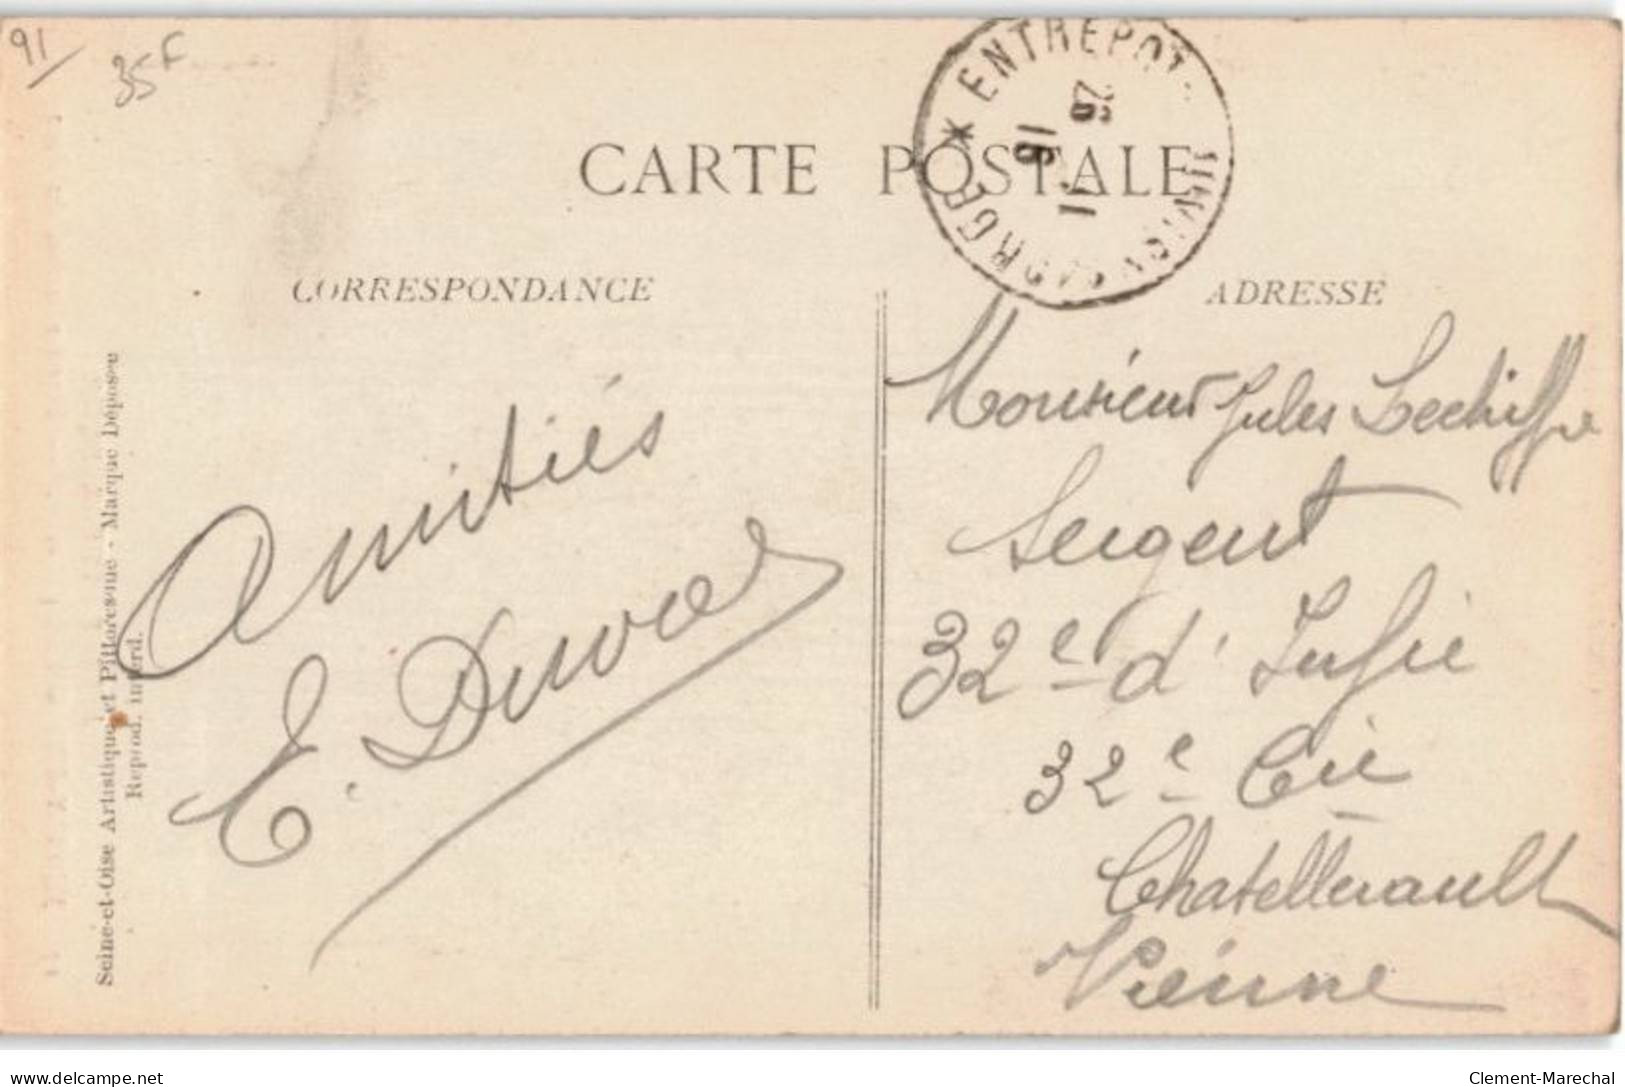 91
35F
CARTE POSTALE
ENTREPOT
26
16
11
CORRESPONDANCE
ADRESSE
Amitiés
E. Duval
Monsieur Jules Lechiffre
Sergent
32e d'Infie
32e Cie
Chatellerault
Vienne
Seine-et-Oise Artistique et Pittoresque - Marque Déposée
Reprod. interd.
delcampe.net
Clement-Marechal